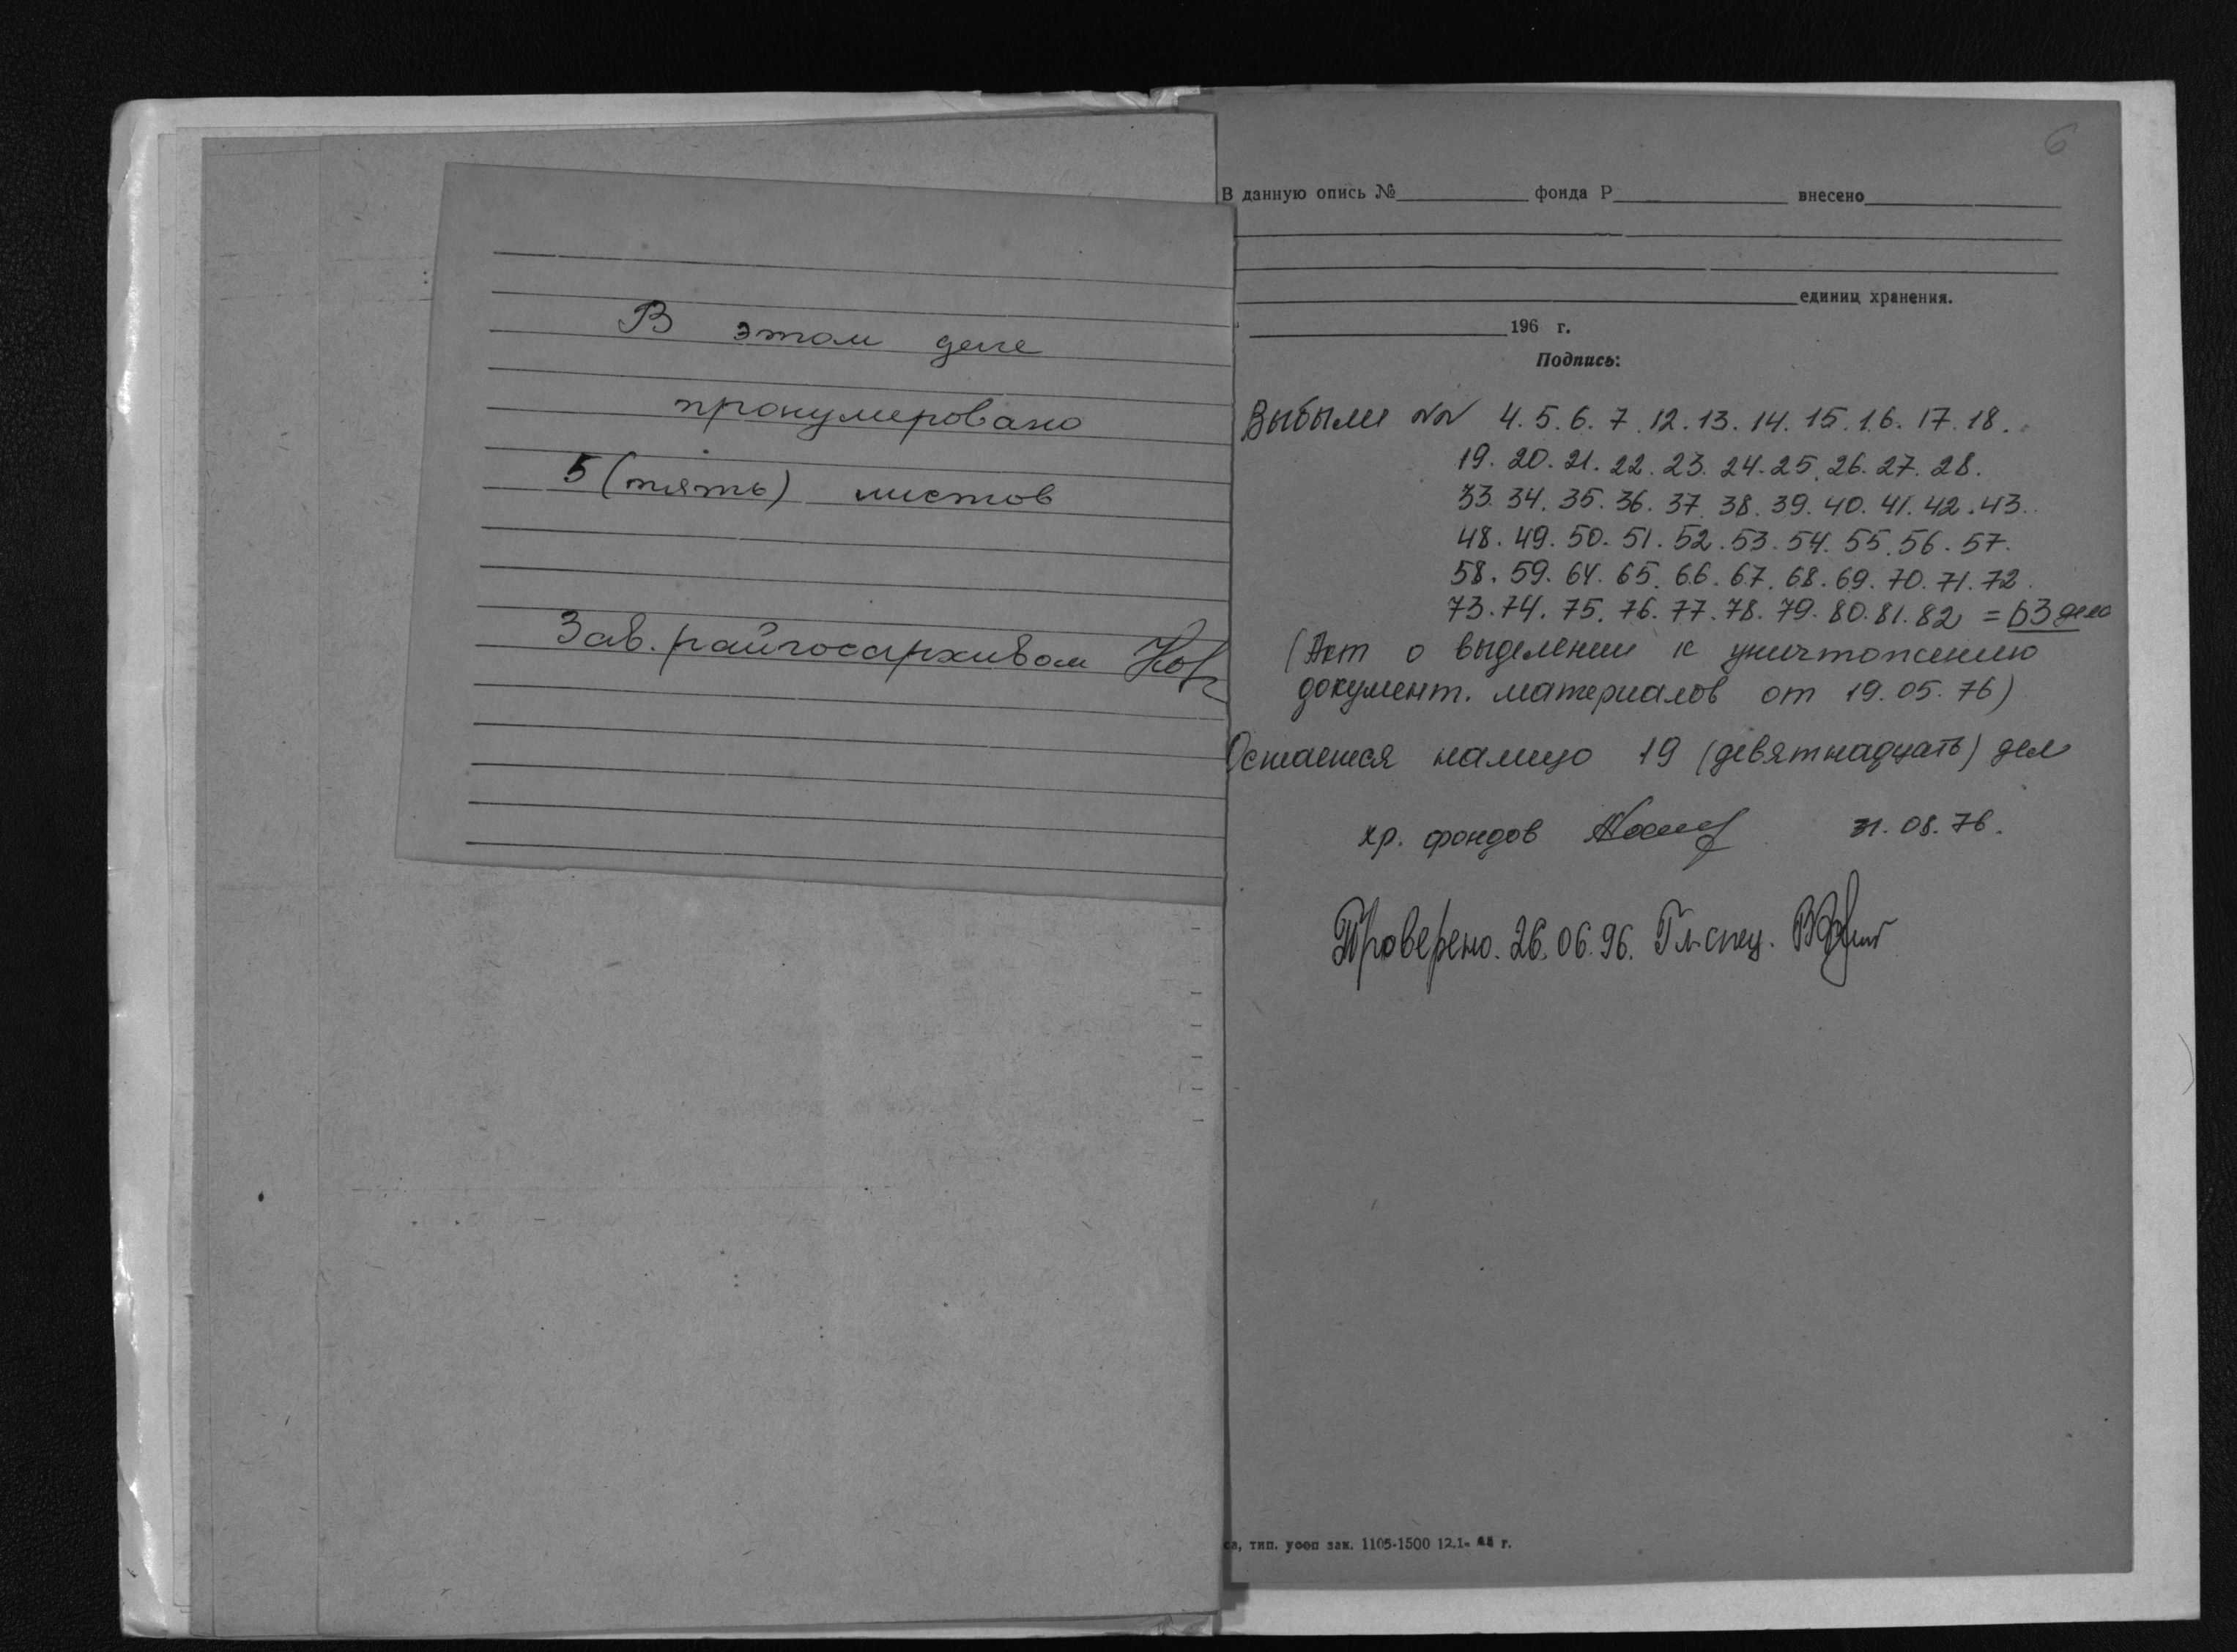 В этом деле
пронумеровано
5 (пять) листов
Зав. райгосархивом
6
В данную опись № фонда Р внесено
единиц хранения.
196 г.
Подпись:
Выбыли NN 4. 5. 6. 7. 12. 13. 14. 15. 16. 17. 18.
19. 20. 21. 22. 23. 24. 25. 26. 27. 28.
33. 34. 35. 36. 37. 38. 39. 40. 41. 42. 43.
48. 49. 50. 51. 52. 53. 54. 55. 56. 57.
58. 59. 64. 65. 66. 67. 68. 69. 70. 71. 72.
73. 74. 75. 76. 77. 78. 79. 80. 81. 82 = 63 дела
(Акт о выделении к уничтожению
документ. материалов от 19.05.76)
Остается налицо 19 (девятнадцать) дел
хр. фондов 31.08.76.
Проверено. 26.06.96. Гл. спец.
са, тип. уооп зак. 1105-1500 12.1- г.